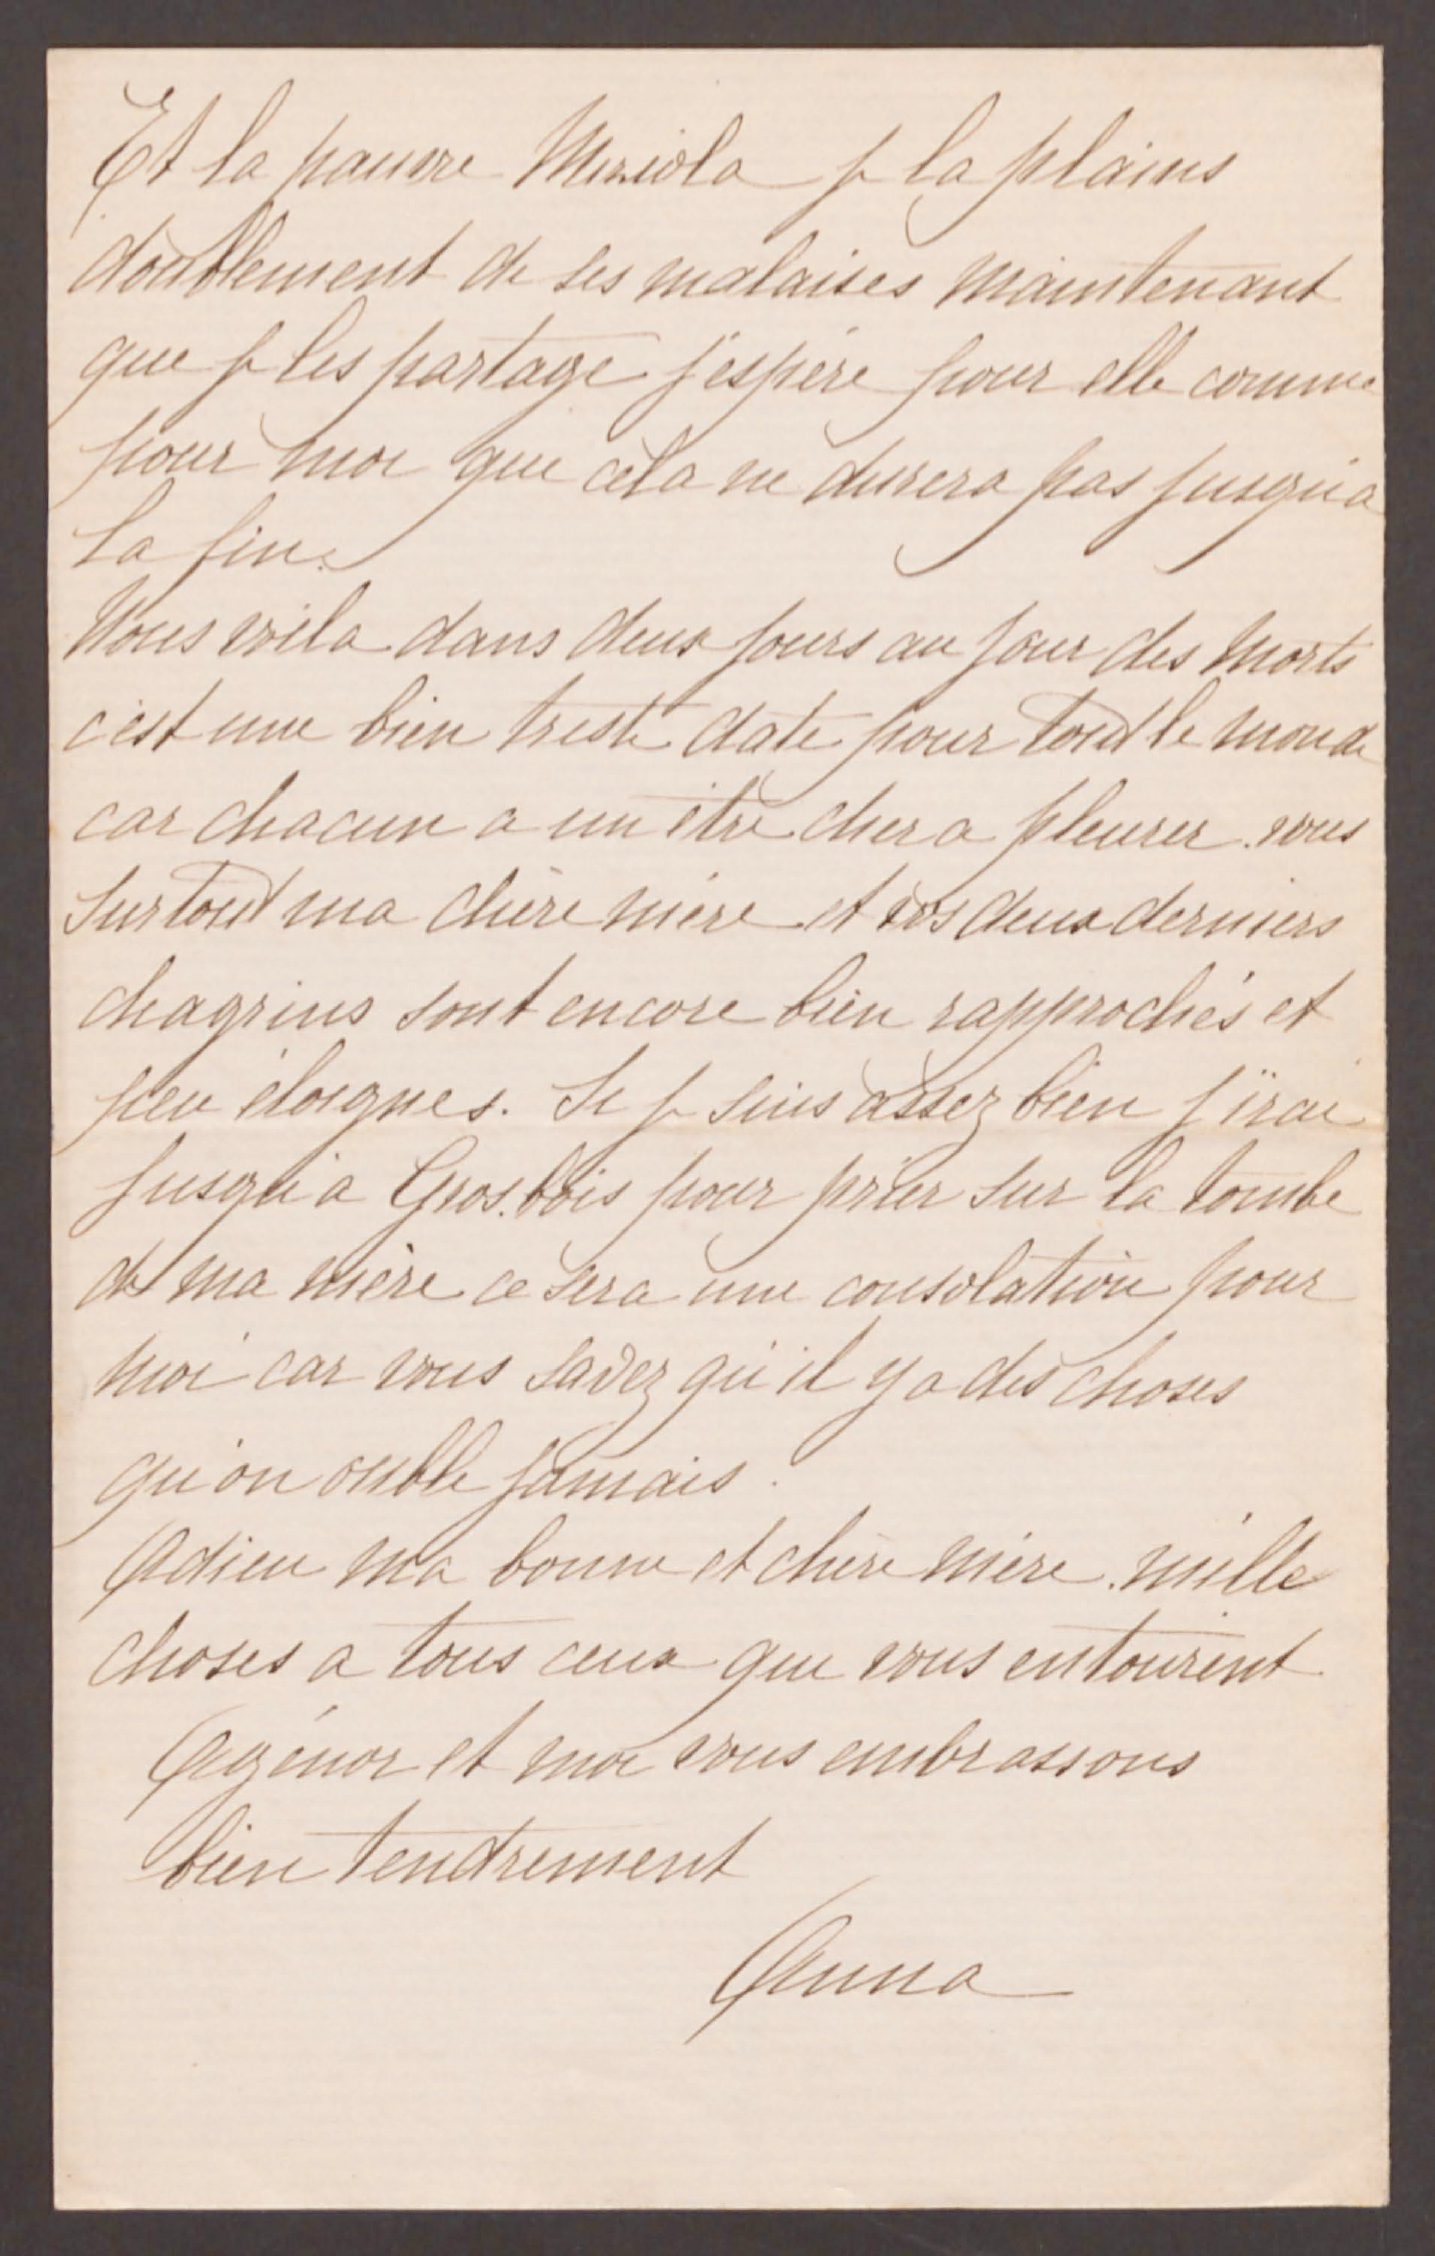 Et la pauvre Meriola je la plains
doublement de ses malaises maintenant
que je les partage j'espère pour elle comme
pour moi que cela ne durera pas jusqu'a
la fin.
Nous voila dans deux jours au jour des morts
c'est une bien triste date pour tout le monde
car chacun a un être cher a pleurer. vous
surtout ma chère mère et vos deux derniers
chagrins sont encore bien rapprochés et
peu éloignes. Si je suis assez bien j'irai
jusqu'a Gros.bois pour prier sur la tombe
de ma mère ce sera une consolation pour
moi car vous savez qu'il y a des choses
qu'on oublie jamais.
Adieu ma bonne et chère mère. mille
choses a tous ceux que vous entourent
Agénor et moi vous embrassons
bien tendrement
Anna